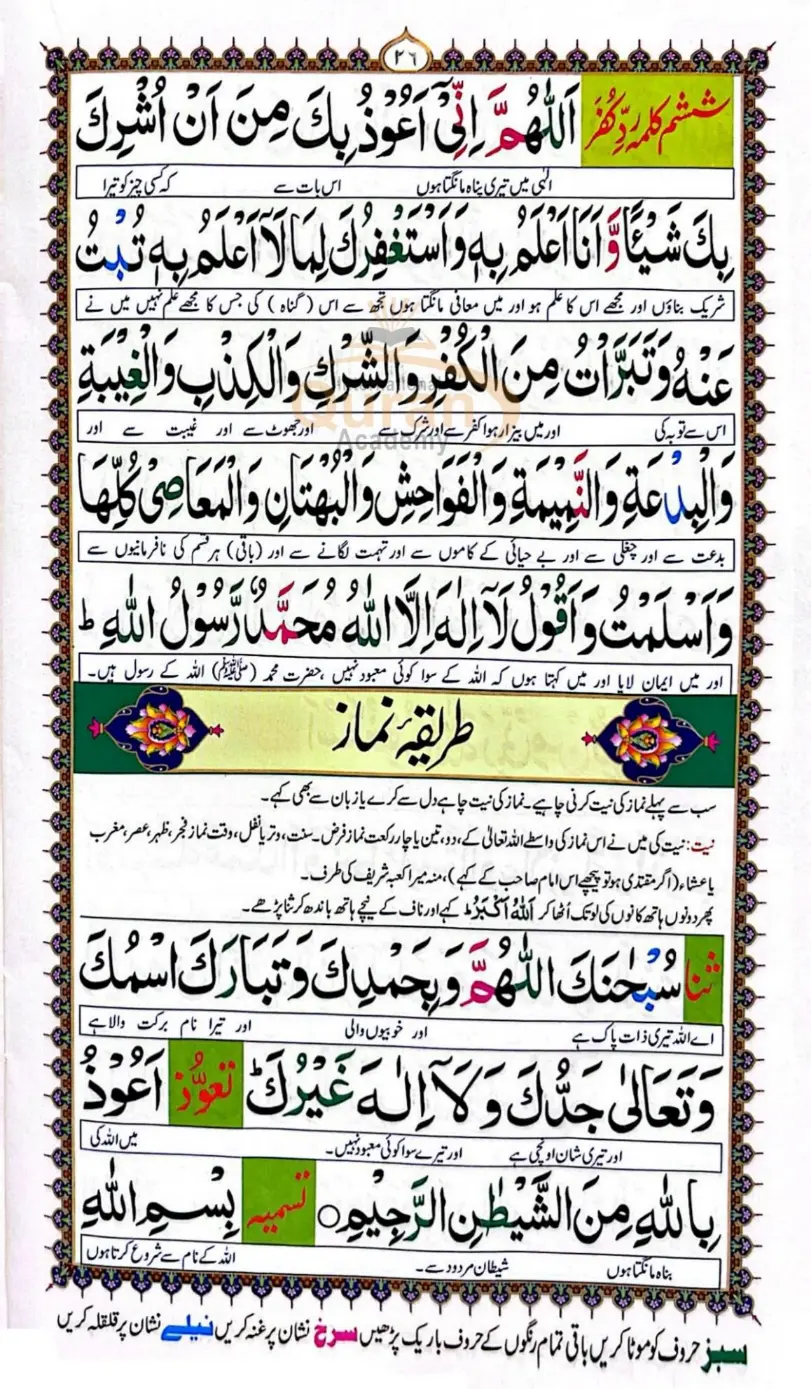 ٢٦
ششم کلمہ ردِّ کفر اَللّٰهُمَّ اِنِّیْۤ اَعُوْذُ بِكَ مِنَ اَنْ اُشْرِكَ
الٰہی میں تیری پناہ مانگتا ہوں اس بات سے کہ کسی چیز کو تیرا
بِكَ شَیْئًا وَّ اَنَا اَعْلَمُ بِهٖ وَ اَسْتَغْفِرُكَ لِمَا لَاۤ اَعْلَمُ بِهٖ تُبْتُ
شریک بناؤں اور مجھے اس کا علم ہو اور میں معافی مانگتا ہوں تجھ سے اس (گناہ) کی جس کا مجھے علم نہیں میں نے
عَنْهُ وَ تَبَرَّاْتُ مِنَ الْكُفْرِ وَ الشِّرْكِ وَ الْكِذْبِ وَ الْغِیْبَةِ
اس سے توبہ کی اور میں بیزار ہوا کفر سے اور شرک سے اور جھوٹ سے اور غیبت سے اور
Quran
Academy
وَ الْبِدْعَةِ وَ النَّمِیْمَةِ وَ الْفَوَاحِشِ وَ الْبُهْتَانِ وَ الْمَعَاصِیْ كُلِّهَا
بدعت سے اور چغلی سے اور بے حیائی کے کاموں سے اور تہمت لگانے سے اور (باقی) ہر قسم کی نافرمانیوں سے
وَ اَسْلَمْتُ وَ اَقُوْلُ لَاۤ اِلٰهَ اِلَّا اللّٰهُ مُحَمَّدٌ رَّسُوْلُ اللّٰهِ ؕ
اور میں ایمان لایا اور میں کہتا ہوں کہ اللہ کے سوا کوئی معبود نہیں، حضرت محمد (ﷺ) اللہ کے رسول ہیں۔
طریقۂ نماز
سب سے پہلے نماز کی نیت کرنی چاہیے۔ نماز کی نیت چاہے دل سے کرے یا زبان سے بھی کہے۔
نیت: نیت کی میں نے اس نماز کی واسطے اللہ تعالیٰ کے، دو، تین یا چار رکعت نماز فرض۔ سنت، وتر یا نفل، وقت نماز فجر، ظہر، عصر، مغرب
یا عشاء، (اگر مقتدی ہو تو پیچھے اس امام صاحب کے کہے)، منہ میرا کعبہ شریف کی طرف۔
پھر دونوں ہاتھ کانوں کی لو تک اُٹھا کر اَللّٰهُ اَكْبَرُ ؕ کہے اور ناف کے نیچے ہاتھ باندھ کر ثنا پڑھے۔
ثنا سُبْحٰنَكَ اللّٰهُمَّ وَ بِحَمْدِكَ وَ تَبَارَكَ اسْمُكَ
اے اللہ تیری ذات پاک ہے اور خوبیوں والی اور تیرا نام برکت والا ہے
وَ تَعَالٰی جَدُّكَ وَ لَاۤ اِلٰهَ غَیْرُكَ ؕ تعوّذ اَعُوْذُ
اور تیری شان اونچی ہے اور تیرے سوا کوئی معبود نہیں۔ میں اللہ کی
بِاللّٰهِ مِنَ الشَّیْطٰنِ الرَّجِیْمِ ○ تسمیہ بِسْمِ اللّٰهِ
پناہ مانگتا ہوں شیطان مردود سے۔ اللہ کے نام سے شروع کرتا ہوں
سبز حروف کو موٹا کریں باقی تمام رنگوں کے حروف باریک پڑھیں سرخ نشان پر غنہ کریں نیلے نشان پر قلقلہ کریں